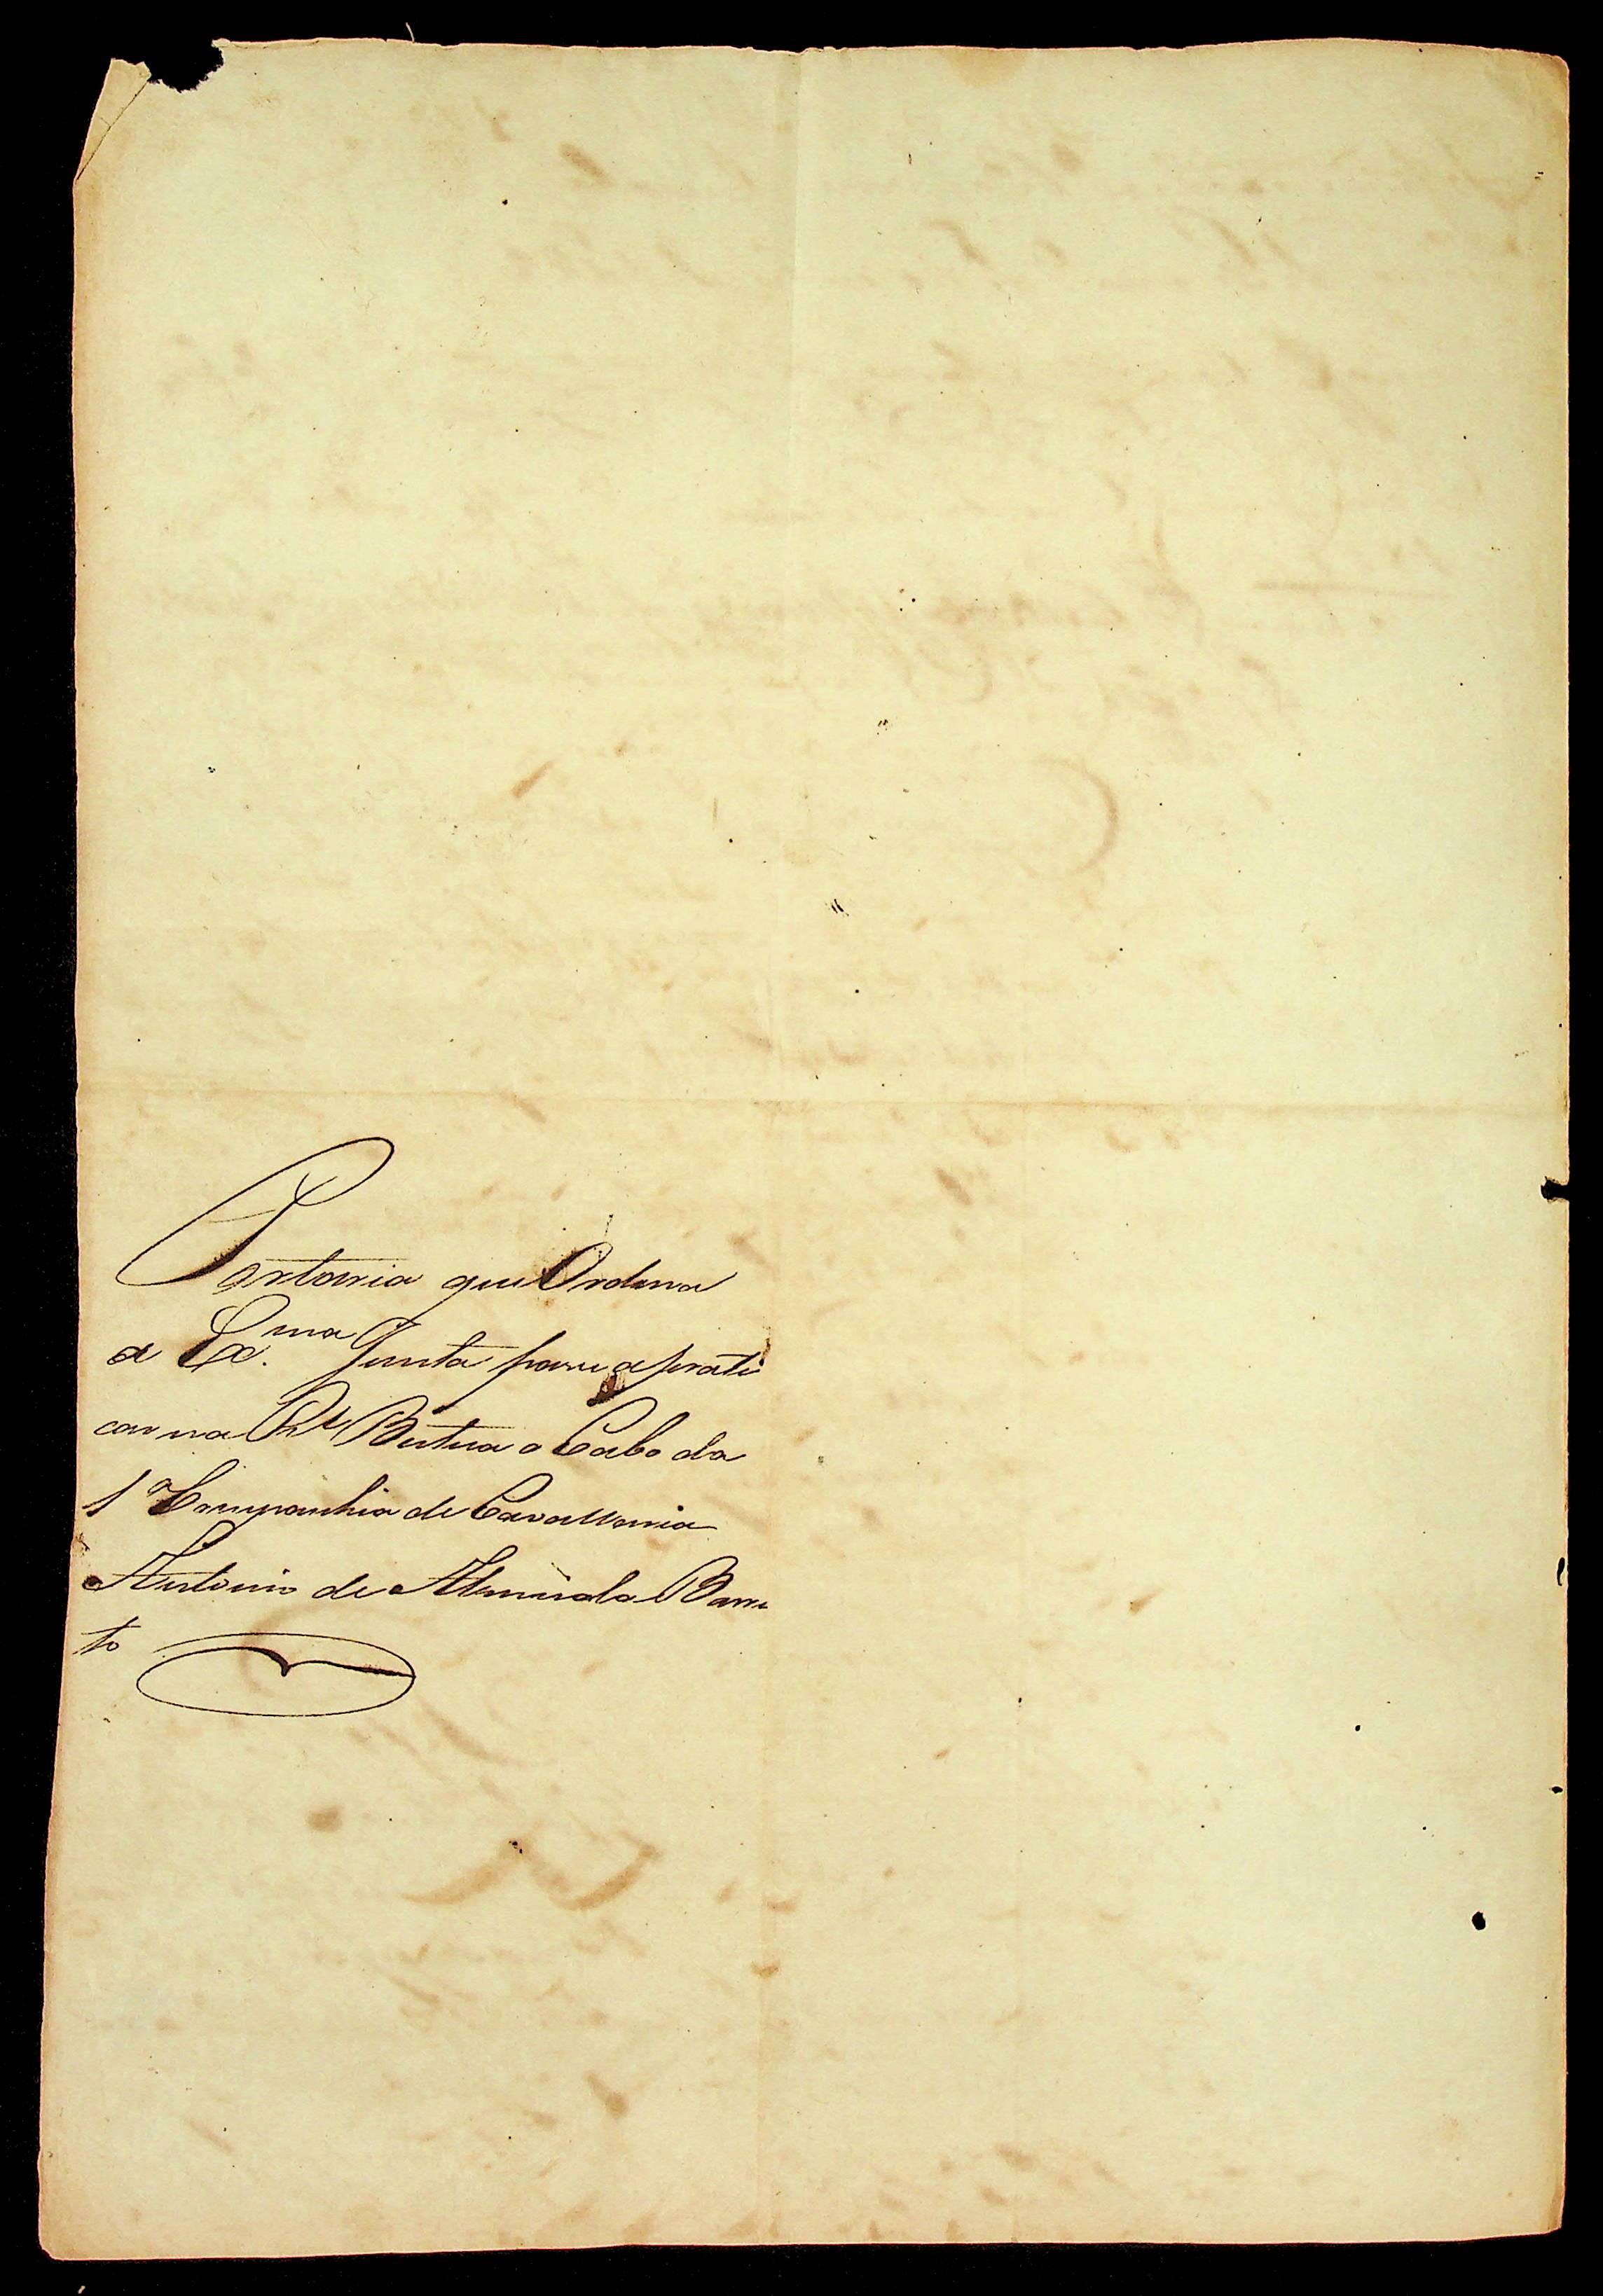 Portaria que Ordena
a Ex.ma Junta para aprati
car na Rl Butica o Cabo da
1ª Companhia de Cavallaria
Antonio de Almeida Barre
to